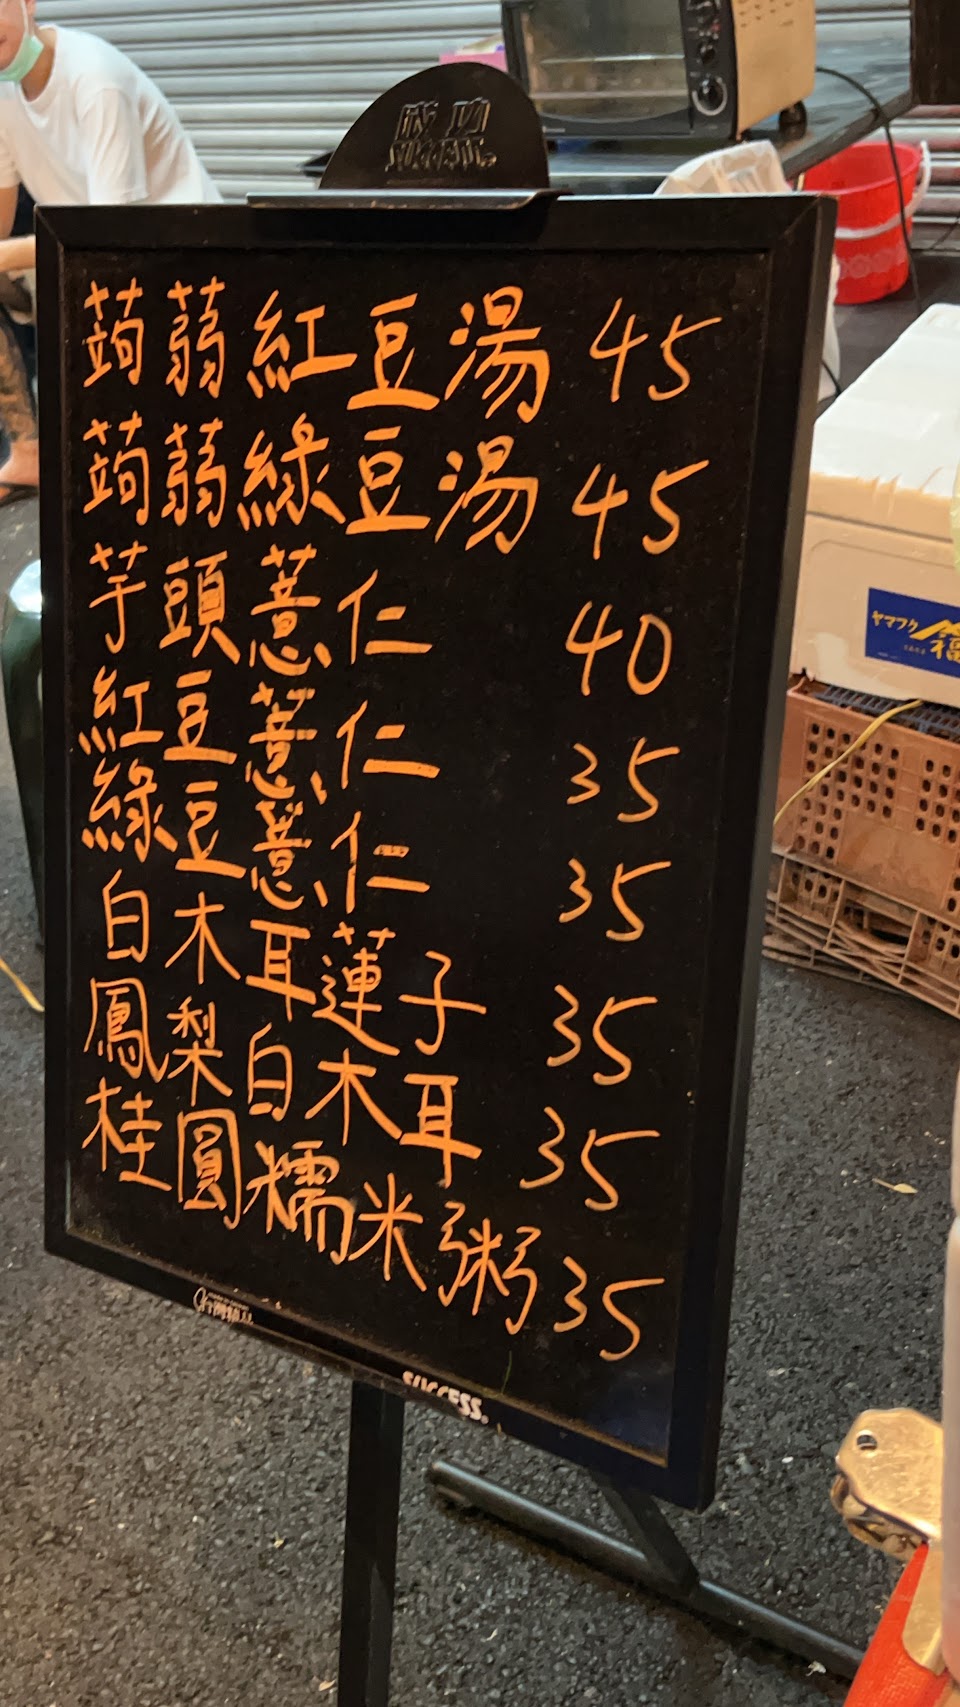 成功
SUCCESS
蒟蒻紅豆湯 45
蒟蒻綠豆湯 45
芋頭薏仁 40
紅豆薏仁 35
綠豆薏仁 35
白木耳蓮子 35
鳳梨白木耳 35
桂圓糯米粥 35
SUCCESS
ヤマフク
福